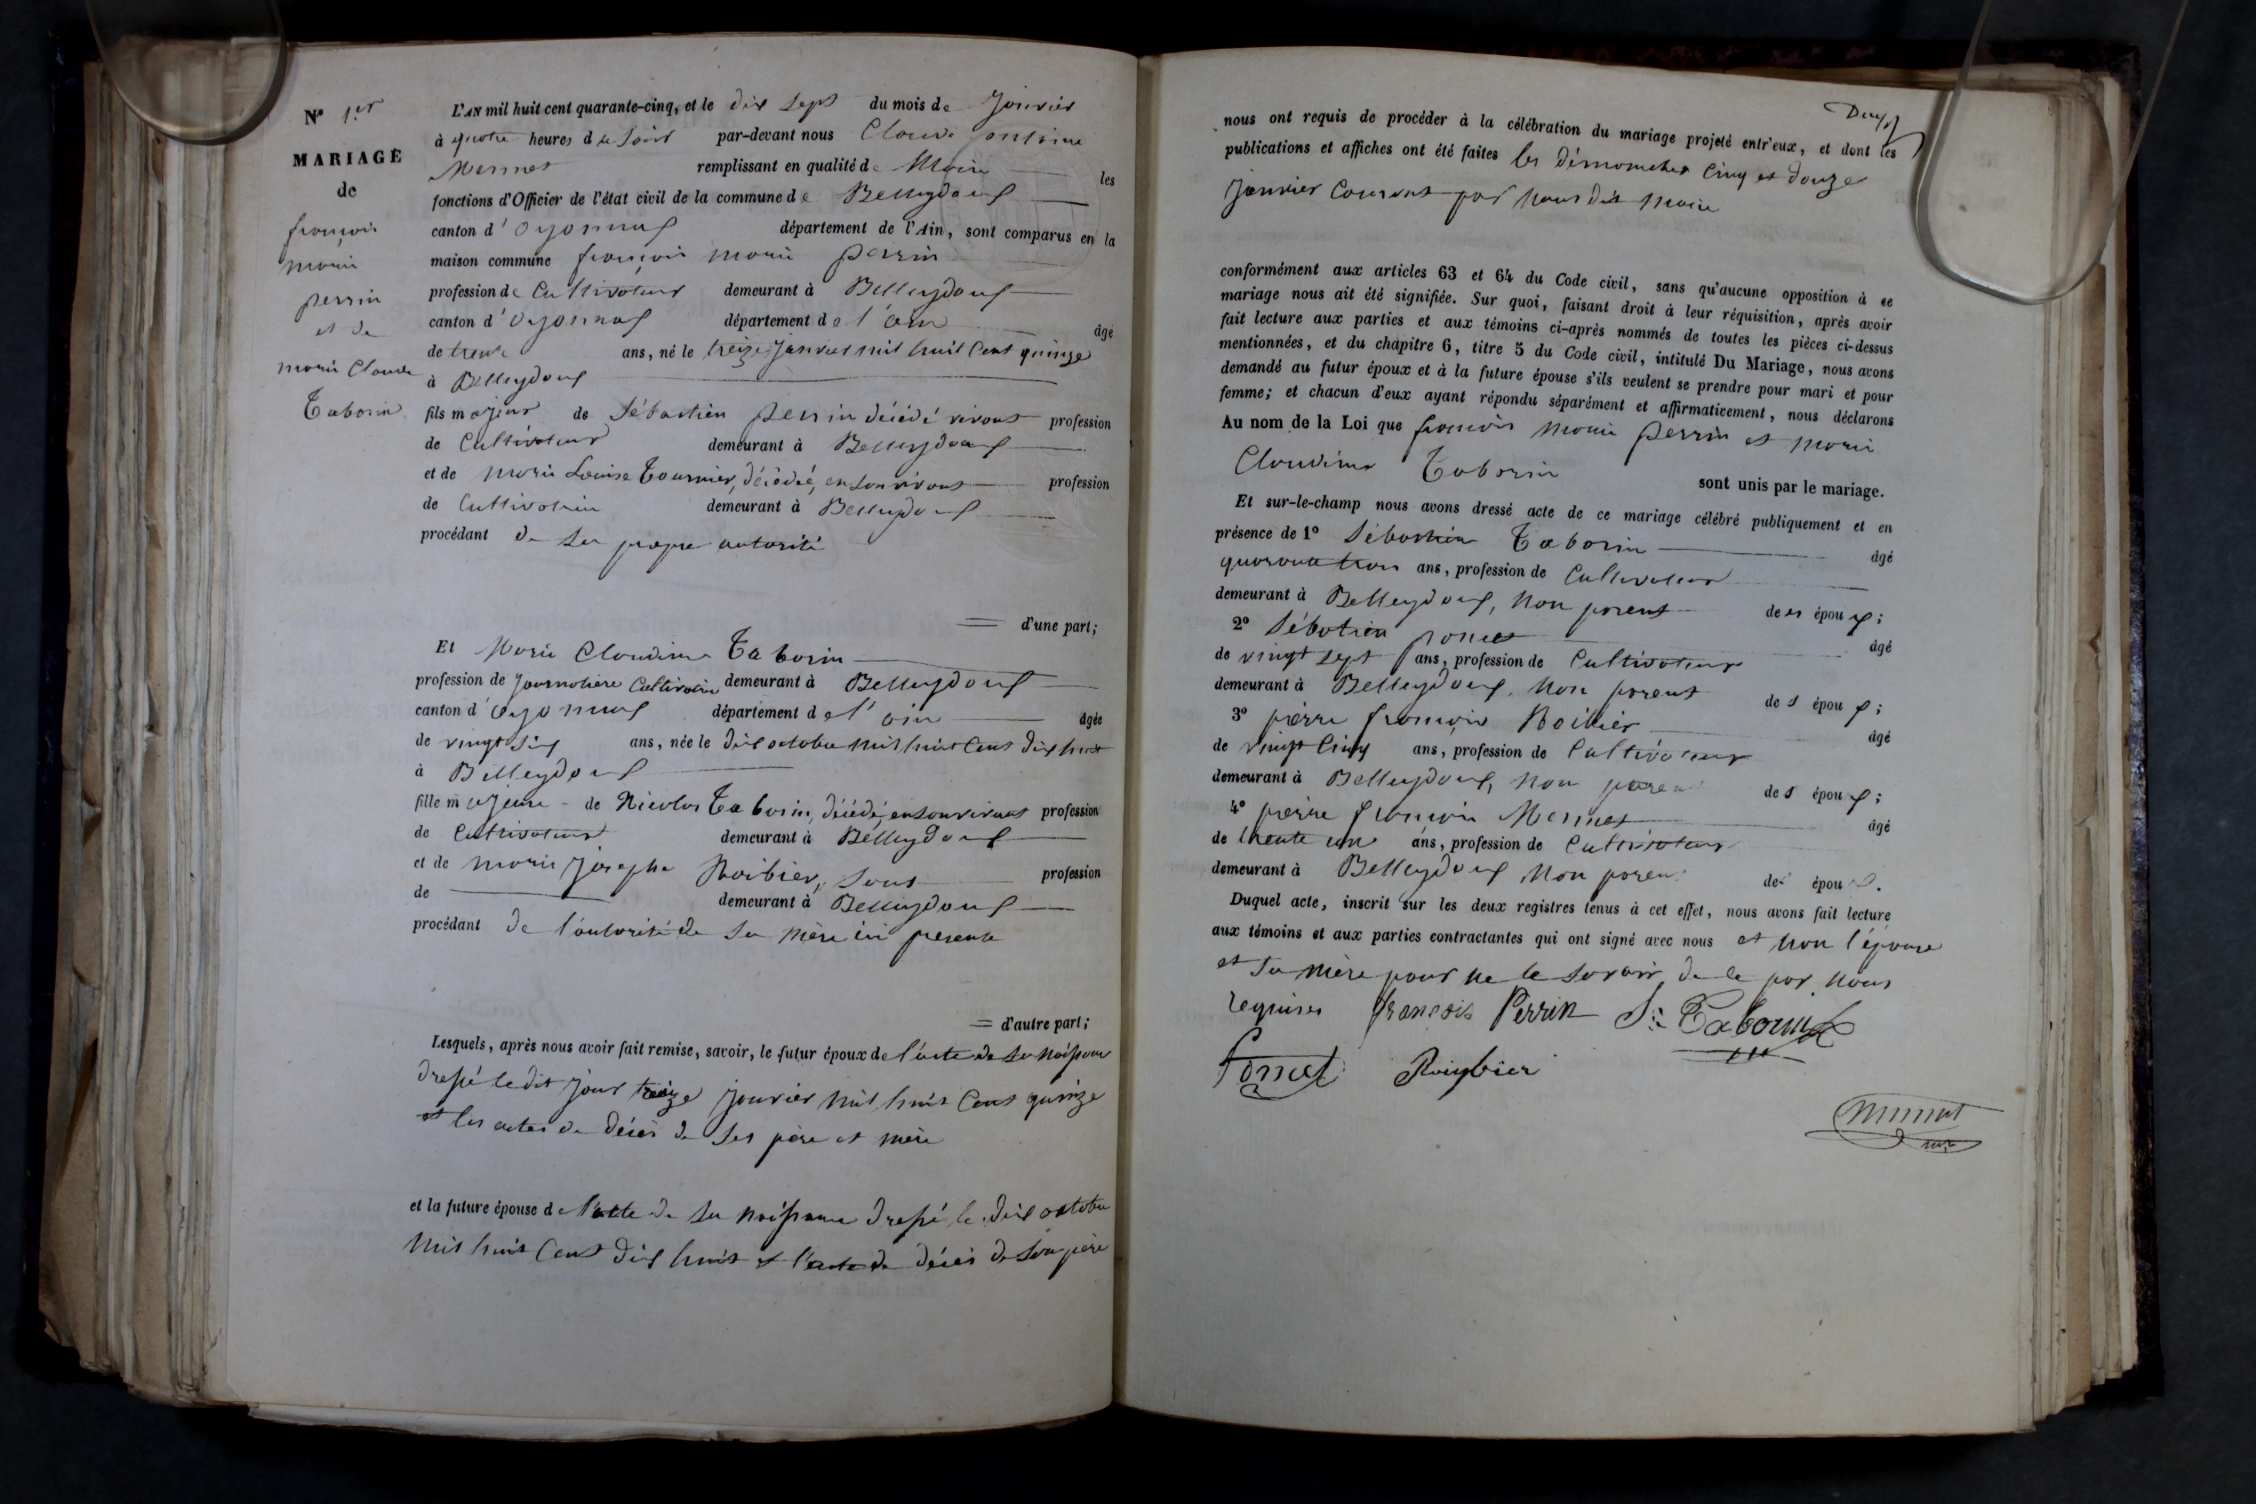 Nº 1.er
MARIAGE
de
françois
marie
perrin
et de
marie Claude
Taborin
L'AN mil huit cent quarante-cinq, et le dix sept du mois de Janvier
à quatre heures du soir par-devant nous Claude antoine
Mermet remplissant en qualité de Maire les
fonctions d'Officier de l'état civil de la commune de Belleydoux
canton d'oyonnax département de l'Ain, sont comparus en la
maison commune françois marie perrin
profession de Cultivateur demeurant à Belleydoux
canton d'oyonnax département de l'ain âgé
de trente ans, né le treize Janvier mil huit Cent quinze
à Belleydoux
fils majeur de Sébastien perrin décédé vivant profession
de Cultivateur demeurant à Belleydoux
et de marie Louise Tournier, décédée, en son vivant profession
de Cultivatrice demeurant à Belleydoux
procédant de sa propre autorité
d'une part;
Et Marie Claudine Taborin
profession de Journalière Cultivatrice demeurant à Belleydoux
canton d'oyonnax département de l'ain âgée
de vingt six ans, née le dix octobre mil huit Cent dix huit
à Belleydoux
fille majeure de Nicolas Taborin, décédé, en son vivant profession
de Cultivateur demeurant à Belleydoux
et de marie Josephe Roibier, sans profession
de demeurant à Belleydoux
procédant de l'autorité de sa mère ici présente
d'autre part;
Lesquels, après nous avoir fait remise, savoir, le futur époux de l'acte de sa naissance
dressé le dit jour treize janvier mil huit Cent quinze
et les actes de décès de ses père et mère
et la future épouse de l'acte de sa naissance dressé le dix octobre
mil huit Cent dix huit et l'acte de décès de son père
Deux
nous ont requis de procéder à la célébration du mariage projeté entr'eux, et dont les
publications et affiches ont été faites les dimanches Cinq et douze
janvier Courant par nous dit maire
conformément aux articles 63 et 64 du Code civil, sans qu'aucune opposition à ce
mariage nous ait été signifiée. Sur quoi, faisant droit à leur réquisition, après avoir
fait lecture aux parties et aux témoins ci-après nommés de toutes les pièces ci-dessus
mentionnées, et du chapitre 6, titre 5 du Code civil, intitulé Du Mariage, nous avons
demandé au futur époux et à la future épouse s'ils veulent se prendre pour mari et pour
femme; et chacun d'eux ayant répondu séparément et affirmativement, nous déclarons
Au nom de la Loi que françois marie perrin et marie
Claudine Taborin sont unis par le mariage.
Et sur-le-champ nous avons dressé acte de ce mariage célébré publiquement et en
présence de 1º Sébastien Taborin âgé
quarante trois ans, profession de Cultivateur
demeurant à Belleydoux, non parent des époux;
2º Sébatien poncet âgé
de vingt sept ans, profession de Cultivateur
demeurant à Belleydoux, non parent des époux;
3º pierre françois Roibier âgé
de vingt Cinq ans, profession de Cultivateur
demeurant à Belleydoux, non parent des époux;
4º pierre françois Mermet âgé
de trente un ans, profession de Cultivateur
demeurant à Belleydoux non parent des époux.
Duquel acte, inscrit sur les deux registres tenus à cet effet, nous avons fait lecture
aux témoins et aux parties contractantes qui ont signé avec nous et non l'épouse
et sa mère pour ne le savoir de ce par nous
requises françois Perrin S.n Taborin
Poncet Roiybier
Mermet